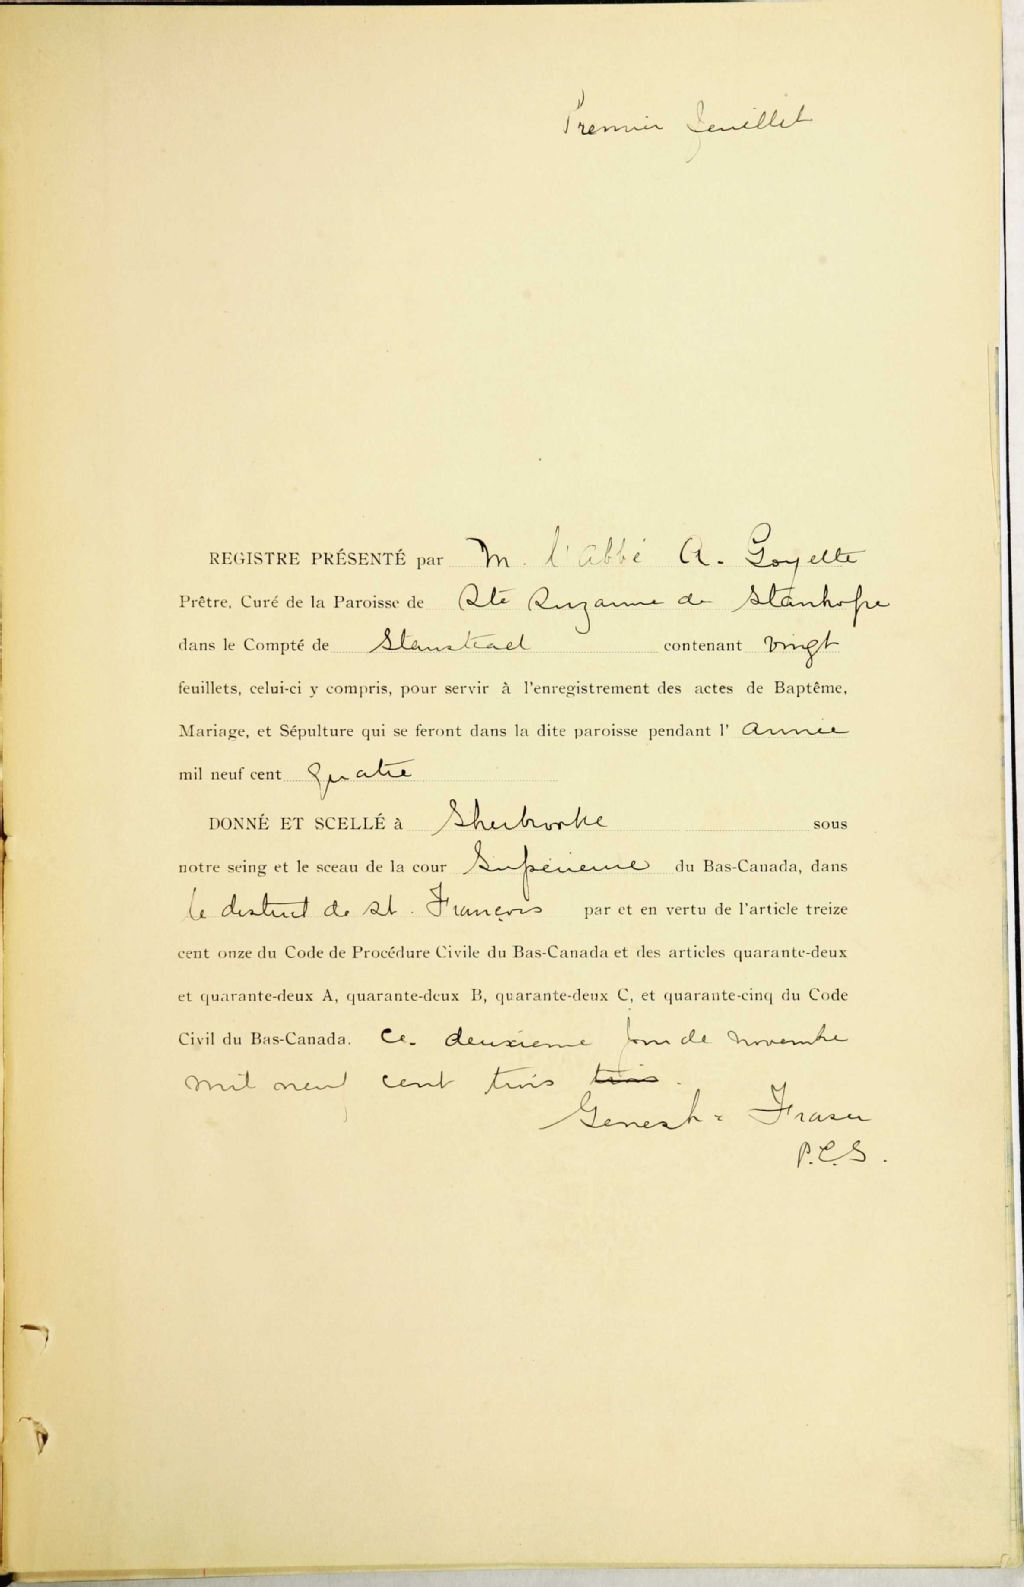 Premier feuillet
REGISTRE PRÉSENTÉ par M. l'Abbé A. Goyette
Prêtre, Curé de la Paroisse de Ste Suzanne de Stanhope
dans le Compté de Stanstead contenant vingt
feuillets, celui-ci y compris, pour servir à l'enregistrement des actes de Baptême,
Mariage, et Sépulture qui se feront dans la dite paroisse pendant l' Année
mil neuf cent quatre
DONNÉ ET SCELLÉ à Sherbrooke sous
notre seing et le sceau de la cour Supérieure du Bas-Canada, dans
le district de St. François par et en vertu de l'article treize
cent onze du Code de Procédure Civile du Bas-Canada et des articles quarante-deux
et quarante-deux A, quarante-deux B, quarante-deux C, et quarante-cinq du Code
Civil du Bas-Canada. Ce deuxieme jour de novembre
mil neuf cent trois trois.
Genest & Fraser
P.C.S.